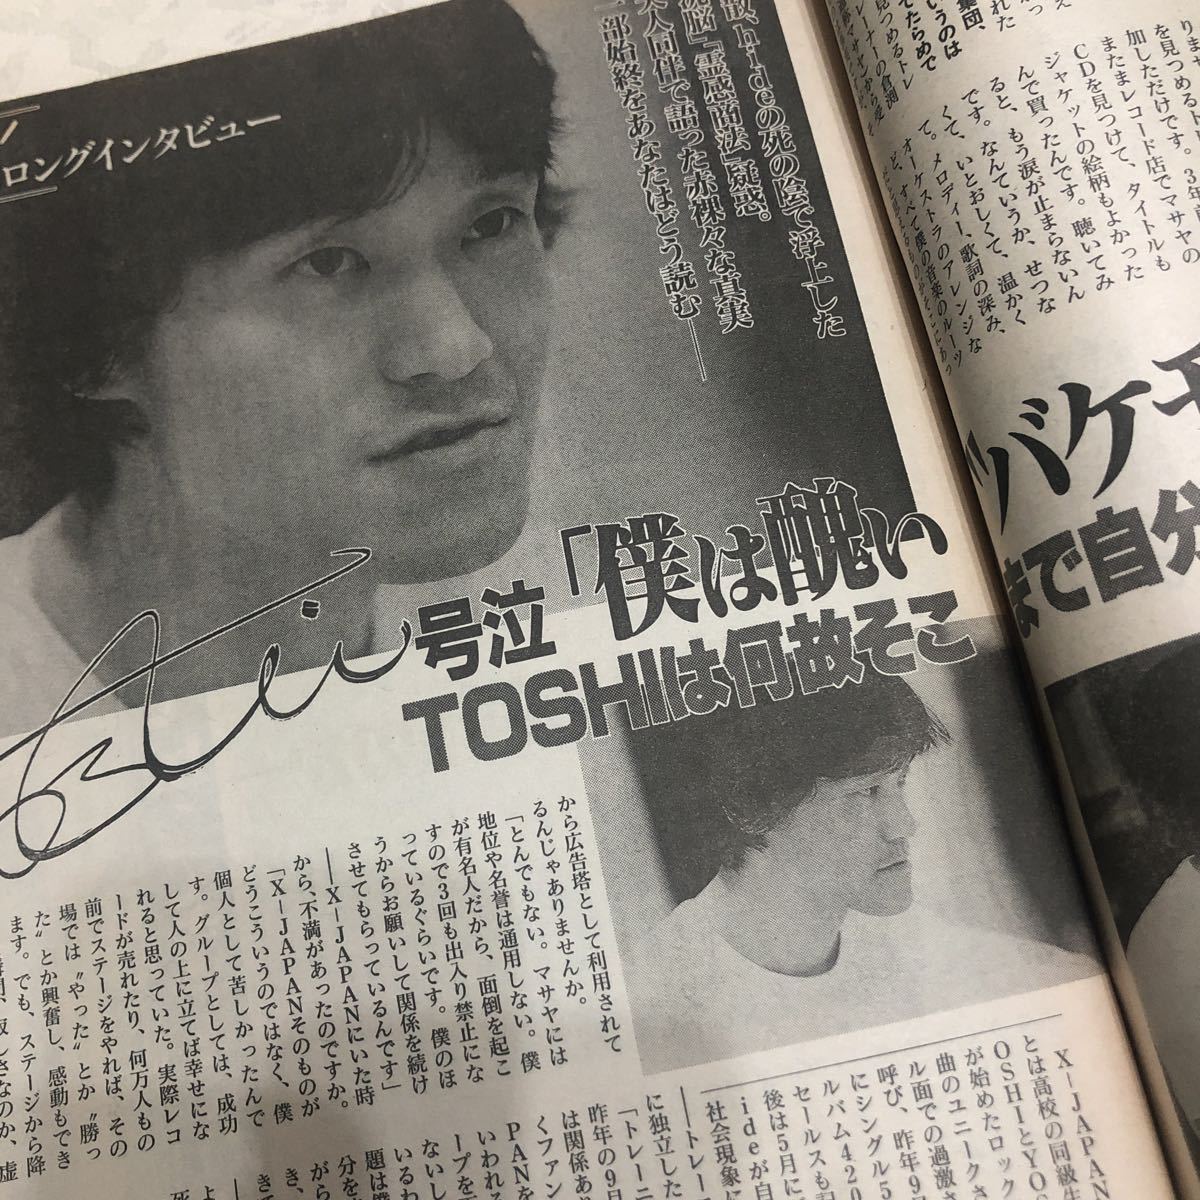 ロングインタビュー
散、hideの死の陰で浮上した
洗脳」「霊感商法」疑惑。
夫人同伴で語った赤裸々な真実
一部始終をあなたはどう読む――
号泣「僕は醜い
"バケモ
TOSHIは何故そこ
まで自分
集団、
いうのは
てたらめで
見つめるトレ
ーナーの倉渕
りませ
を見つめるト
加しただけです。3年
またまレコード店でマサヤの
CDを見つけて、タイトルも
ジャケットの絵柄もよかった
んで買ったんです。聴いてみ
ると、もう涙が止まらないん
です。なんていうか、せつな
くて、いとおしくて、温かく
て。メロディー、歌詞の深み、
オーケストラのアレンジな
ど、すべて僕の音楽のルーツ
から広告塔として利用されて
るんじゃありませんか。
「とんでもない。マサヤには
地位や名誉は通用しない。僕
が有名人だから、面倒を起こ
すので3回も出入り禁止にな
っているぐらいです。僕のほ
うからお願いして関係を続け
させてもらっているんです」
――X-JAPANにいた時
から、不満があったのですか。
「X-JAPANそのものが
どうこういうのではなく、僕
個人として苦しかったんで
す。グループとしては、成功
して人の上に立てば幸せにな
れると思っていた。実際レコ
ードが売れたり、何万人もの
前でステージをやれば、その
場では〝やった〟とか〝勝っ
た〟とか興奮し、感動もでき
ます。でも、ステージから降
X-JAPAN
とは高校の同級
OSHIとYO
が始めたロック
曲のユニークさ
ル面での過激さ
呼び、昨年9
にシングル5
ルバム420
セールスも
後は5月に
ideが自
社会現象に
――トレー
に独立した
「トレーニ
昨年の9月
は関係あ
くファン
PANを
いわれる
ープを
ないし
いるわ
題は僕
分を
きて
がら